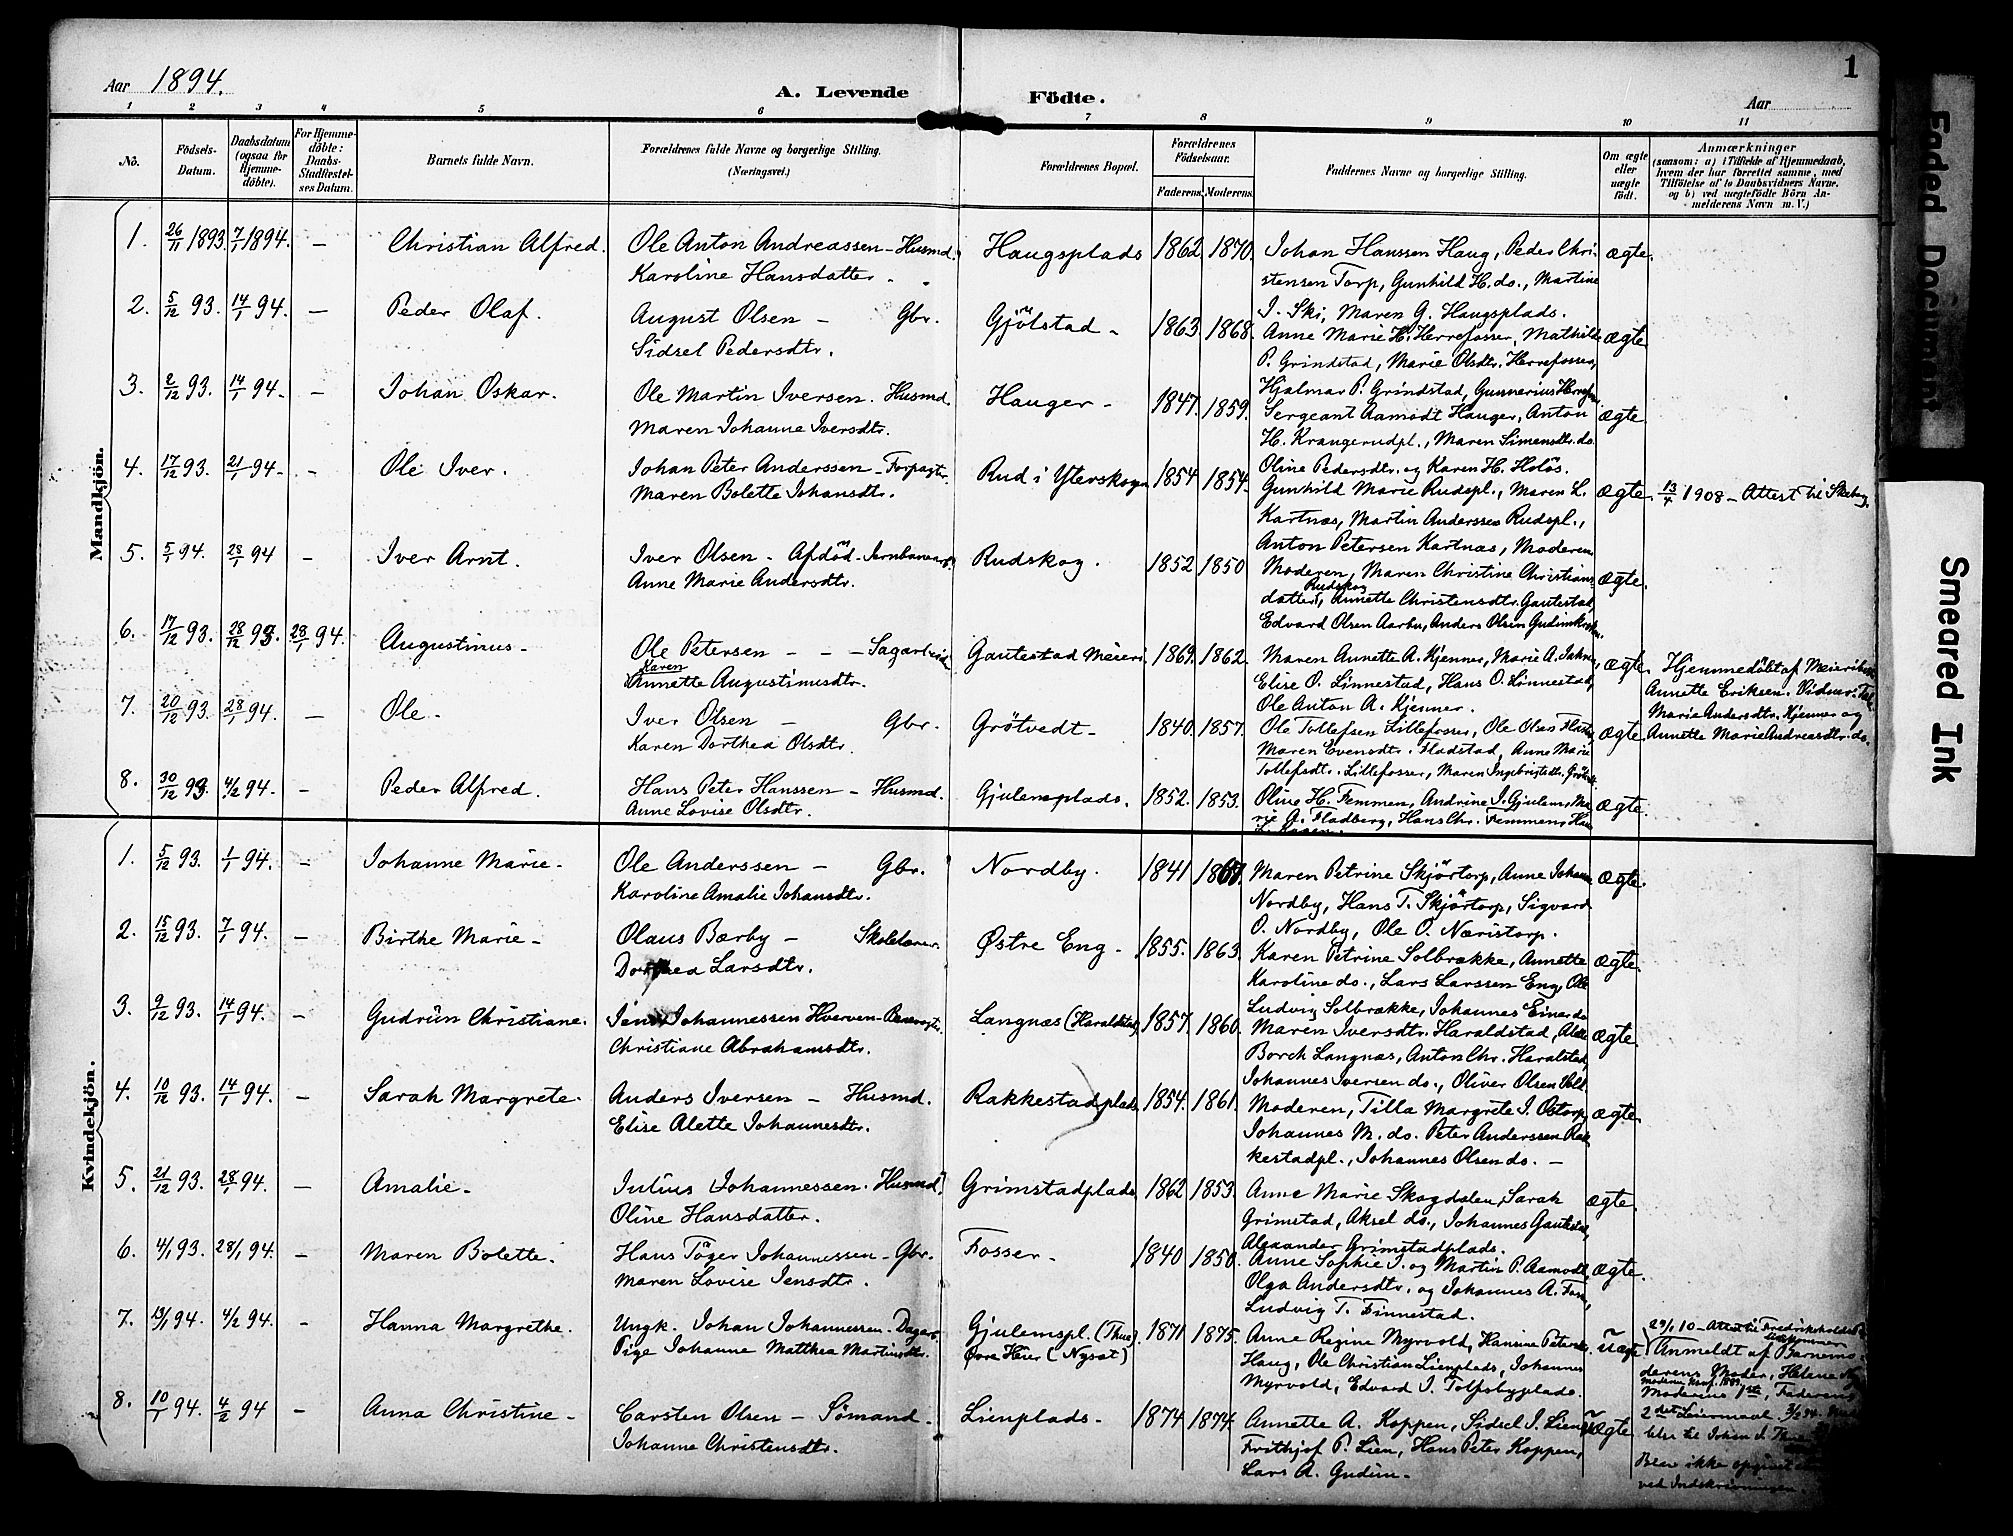 Aar 1894.
A. Levende Födte.
Aar
1
1 2 3 4 5 6 7 8 9 10 11
No.
Födsels-Datum.
Daabsdatum (ogsaa for Hjemme-döbte).
For Hjemme-döbte: Daabs-Stadfæstel-ses Datum.
Barnets fulde Navn.
Forældrenes fulde Navne og borgerlige Stilling. (Næringsvei.)
Forældrenes Bopæl.
Forældrenes Födselsaar.
Faderens. Moderens.
Faddernes Navne og borgerlige Stilling.
Om ægte eller uægte født.
Anmærkninger
(saasom: a) i Tilfælde af Hjemmedaab, hvem der har forrettet samme, med Tilföielse af to Daabsvidners Navne, og b) ved uægtefödte Börn An-melderens Navn m. V.)
Mandkjön.
1. 26/11 1893. 7/1 1894. – Christian Alfred. Ole Anton Andreassen – Husmd. Haugsplads 1862 1870. Johan Hanssen Haug, Peder Chri- ægte.
Karoline Hansdatter. stensen Torp, Gunhild H. do., Martine
I. Ski, Maren G. Haugsplads.
2. 5/12 93. 14/1 94. – Peder Olaf. August Olsen – Gbr. Gjölstad – 1863 1868. Anne Marie H. Herrefosser, Mathilde ægte
Sidsel Pedersdtr. P. Grindstad, Marie Olsdtr. Herrefosser,
Hjalmar P. Grindstad, Gunnerius
3. 2/12 93. 14/1 94. – Johan Oskar. Ole Martin Iversen. Husmd. Hauger – 1847. 1859. Sergeant Aamodt Hauger, Anton ægte
Maren Johanne Iversdtr. H. Krangerudpl., Maren Simensdtr. do
Oline Pedersdtr. og Karen H. Holös.
4. 17/12 93. 21/1 94. – Ole Iver. Johan Peter Anderssen – Forpagtr. Rud i Yterskogen 1854 1854. Gunhild Marie Rudspl., Maren L. ægte. 13/4 1908 – Attest til
Maren Bolette Johansdtr. Kartnæs, Martin Anderssen Rudspl.,
Anton Petersen Kartnæs, Moderen
5. 5/1 94. 28/1 94 – Iver Arnt. Iver Olsen – Afdöd Rudskog. 1852 1850 Moderen, Maren Christine Christians- ægte.
Anne Marie Andersdtr. datter Rudskog, Annette Christensdtr. Gautestad,
Edvard Olsen Aarbu, Anders Olsen
6. 17/12 93. 28/12 93. 28/1 94. Augustinus – Ole Petersen – – – Sagarbeid. Gautestad Meieri 1869. 1862. Maren Annette A. Kjenner, Marie A. ægte. Hjemmedöbt af
Karen Annette Augustinusdtr. Elise O. Linnestad, Hans O. Linnestad, Annette Eriksen. Vidner:
Ole Anton A. Kjenner. Marie Andersdtr. Kjenner og
7. 20/12 93. 28/1 94. – Ole – Iver Olsen – Gbr. Grötvedt – 1840. 1857. Ole Tollefsen Lillefosser, Ole Olsen ægte. Annette Marie Andreasdtr. do.
Karen Dorthea Olsdtr. Maren Evensdtr. Fladstad, Anne Marie
Tollefsdtr. Lillefosser, Maren
8. 30/12 93. 4/2 94. – Peder Alfred. Hans Peter Hanssen – Husmd. Gjulemsplads. 1852. 1853. Oline H. Femmen, Andrine I. Gjulem, Ma- ægte.
Anne Lovise Olsdtr. rie A. Fladberg, Hans Chr. Femmen, Hans
Kvindekjön.
1. 5/12 93. 1/1 94. – Johanne Marie – Ole Anderssen – Gbr. Nordby. 1841 Maren Petrine Skjörtorp, Anne Johanne ægte.
Karoline Amalie Johansdtr. Nordby, Hans T. Skjörtorp, Sigvard
O. Nordby, Ole O. Næristorp.
2. 15/12 93. 7/1 94. – Birthe Marie – Olaus Bærby – Skolelærer. Østre Eng – 1855. 1863. Karen Petrine Solbrække, Annette ægte.
Dorthea Larsdtr. Karoline do., Lars Larssen Eng, Ole
Ludvig Solbrække, Johannes Einar do
3. 9/12 93. 14/1 94. – Gudrün Christiane. Johannessen Hverven Langnæs (Haraldstad) 1857. 1860. Maren Iversdtr. Haraldstad, ægte.
Christiane Abrahamsdtr. Borch Langnæs, Anton Chr. Haralstad,
Johannes Iversen do., Oliver Olsen
4. 10/12 93. 14/1 94. – Sarah Margrete. Anders Iversen – Husmd. Rakkestadplads 1854. 1861. Moderen, Tilla Margrete I. Ostorp, ægte.
Elise Alette Johannesdtr. Johannes M. do. Peter Anderssen Rak-
kestadpl., Johannes Olsen do. –
5. 21/12 93. 28/1 94. – Amalie – Julius Johannessen. Husmd. Grimstadplads 1862 1853. Anne Marie Skogdalen, Sarah ægte.
Oline Hansdatter. Grimstad, Aksel do., Johannes
Alexander Grimstadplads.
6. 4/1 93. 28/1 94. – Maren Bolette. Hans Töger Johannessen – Gbr. Fosser – 1840 1850. Anne Sophie I. og Martin P. Aamodt, ægte.
Maren Lovise Jensdtr. Olga Andersdtr. og Johannes A.
Ludvig T. Finnestad.
7. 13/1 94. 4/2 94. – Hanna Margrethe. Ungk. Johan Johannessen – Dagarb. Gjulemspl. (Thue) 1871 1875. Anne Regine Myrvold, Hansine uægte 29/1 10 – Attest til
Pige Johanne Matthea Martinsdtr. Øvre Heier (Nysæt) Haug, Ole Christian Lienplads, Johannes Anmeldt af Barnemo-
Myrvold, Edvard I. Tolfsbyplads. derens Moder, Helene
Moderens 1ste, Faderens
2det Leiermaal.
8. 10/1 94. 4/2 94 – Anna Christine – Carsten Olsen – Sömand. Lienplads – 1874 1874. Annette A. Koppen, Sidsel I. Lien, ægte
Johanne Christensdtr. Frithjof P. Lien, Hans Peter Koppen,
Lars A. Gudim. Blev ikke opgivet
ved Indskrivningen.
Faded Document
Smeared Ink